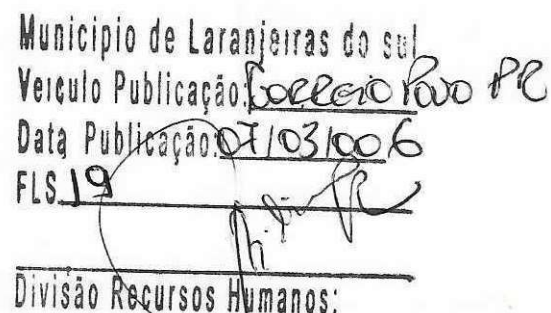 Municipio de Laranjeiras do sul
Veiculo Publicação: Correio Povo PR
Data Publicação: 07/03/006
FLS. 19
Divisão Recursos Humanos: